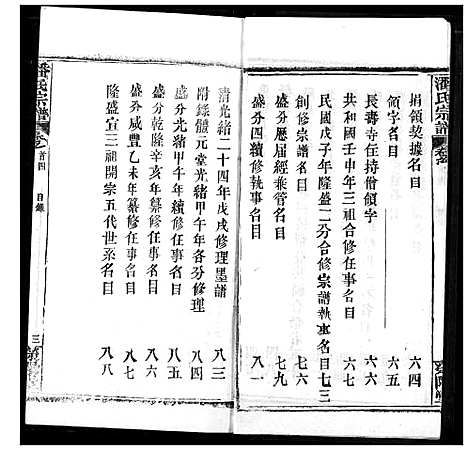 潘氏宗譜
捐領契據名目 六四
領字名目 六五
長壽寺任持僧領字 六六
共和國壬申年三祖合修任事名目 六七
民國戊子年隆盛二分合修宗譜執事名目 七三
創修宗譜名目 七六
盛分歷屆經乗管名目 七九
盛分四續修執事名目 八一
清光緒二十四年戊戌修理墨譜 八三
附錄體元堂光緒甲午年各分修理 八四
盛分光緒甲午年續修任事名目 八五
盛分乾隆辛亥年纂修任事名目 八六
盛分咸豐乙未年纂修任事名目 八七
隆盛宣三祖開宗五代世系名目 八八
潘氏宗譜
卷首四 目錄 三